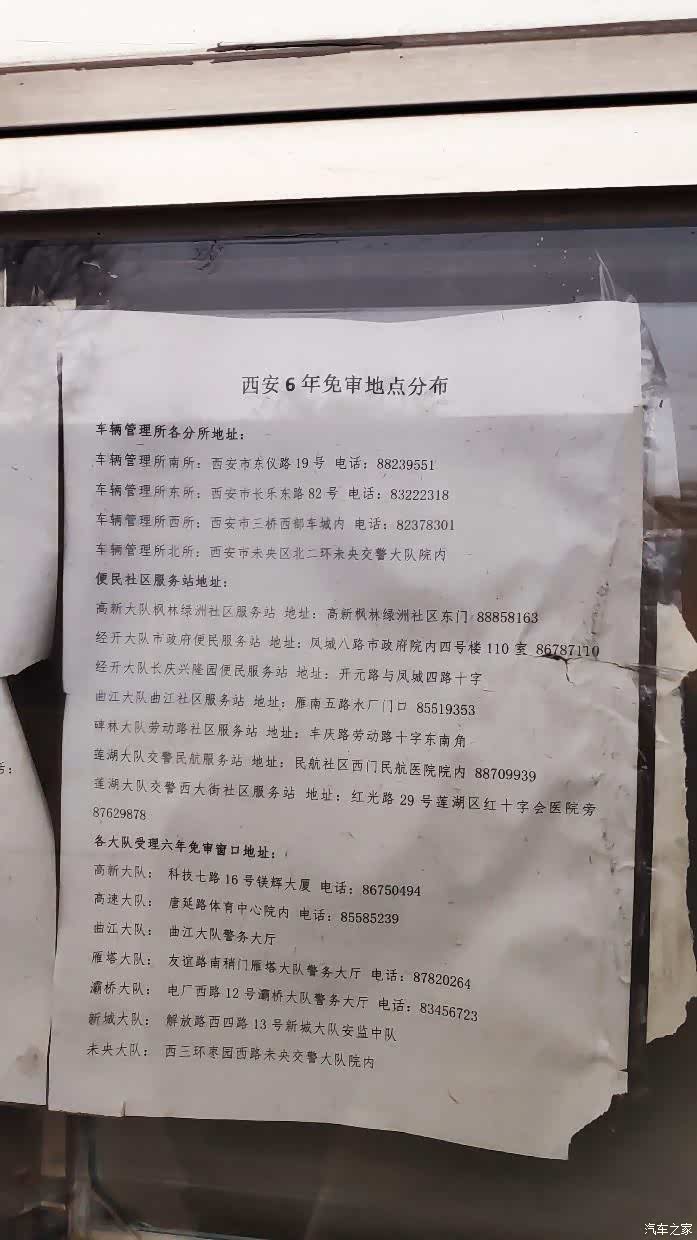 西安6年免审地点分布
车辆管理所各分所地址：
车辆管理所南所：西安市东仪路19号 电话：88239551
车辆管理所东所：西安市长乐东路82号 电话：83222318
车辆管理所西所：西安市三桥西部车城内 电话：82378301
车辆管理所北所：西安市未央区北二环未央交警大队院内
便民社区服务站地址：
高新大队枫林绿洲社区服务站 地址：高新枫林绿洲社区东门 88858163
经开大队市政府便民服务站 地址：凤城八路市政府院内四号楼110室 86787110
经开大队长庆兴隆园便民服务站 地址：开元路与凤城四路十字
曲江大队曲江社区服务站 地址：雁南五路水厂门口 85519353
碑林大队劳动路社区服务站 地址：丰庆路劳动路十字东南角
莲湖大队交警民航服务站 地址：民航社区西门民航医院院内 88709939
莲湖大队交警西大街社区服务站 地址：红光路29号莲湖区红十字会医院旁
87629878
各大队受理六年免审窗口地址：
高新大队： 科技七路16号镁辉大厦 电话：86750494
高速大队： 唐延路体育中心院内 电话：85585239
曲江大队： 曲江大队警务大厅
雁塔大队： 友谊路南稍门雁塔大队警务大厅 电话：87820264
灞桥大队： 电厂西路12号灞桥大队警务大厅 电话：83456723
新城大队： 解放路西四路13号新城大队安监中队
未央大队： 西三环枣园西路未央交警大队院内
汽车之家